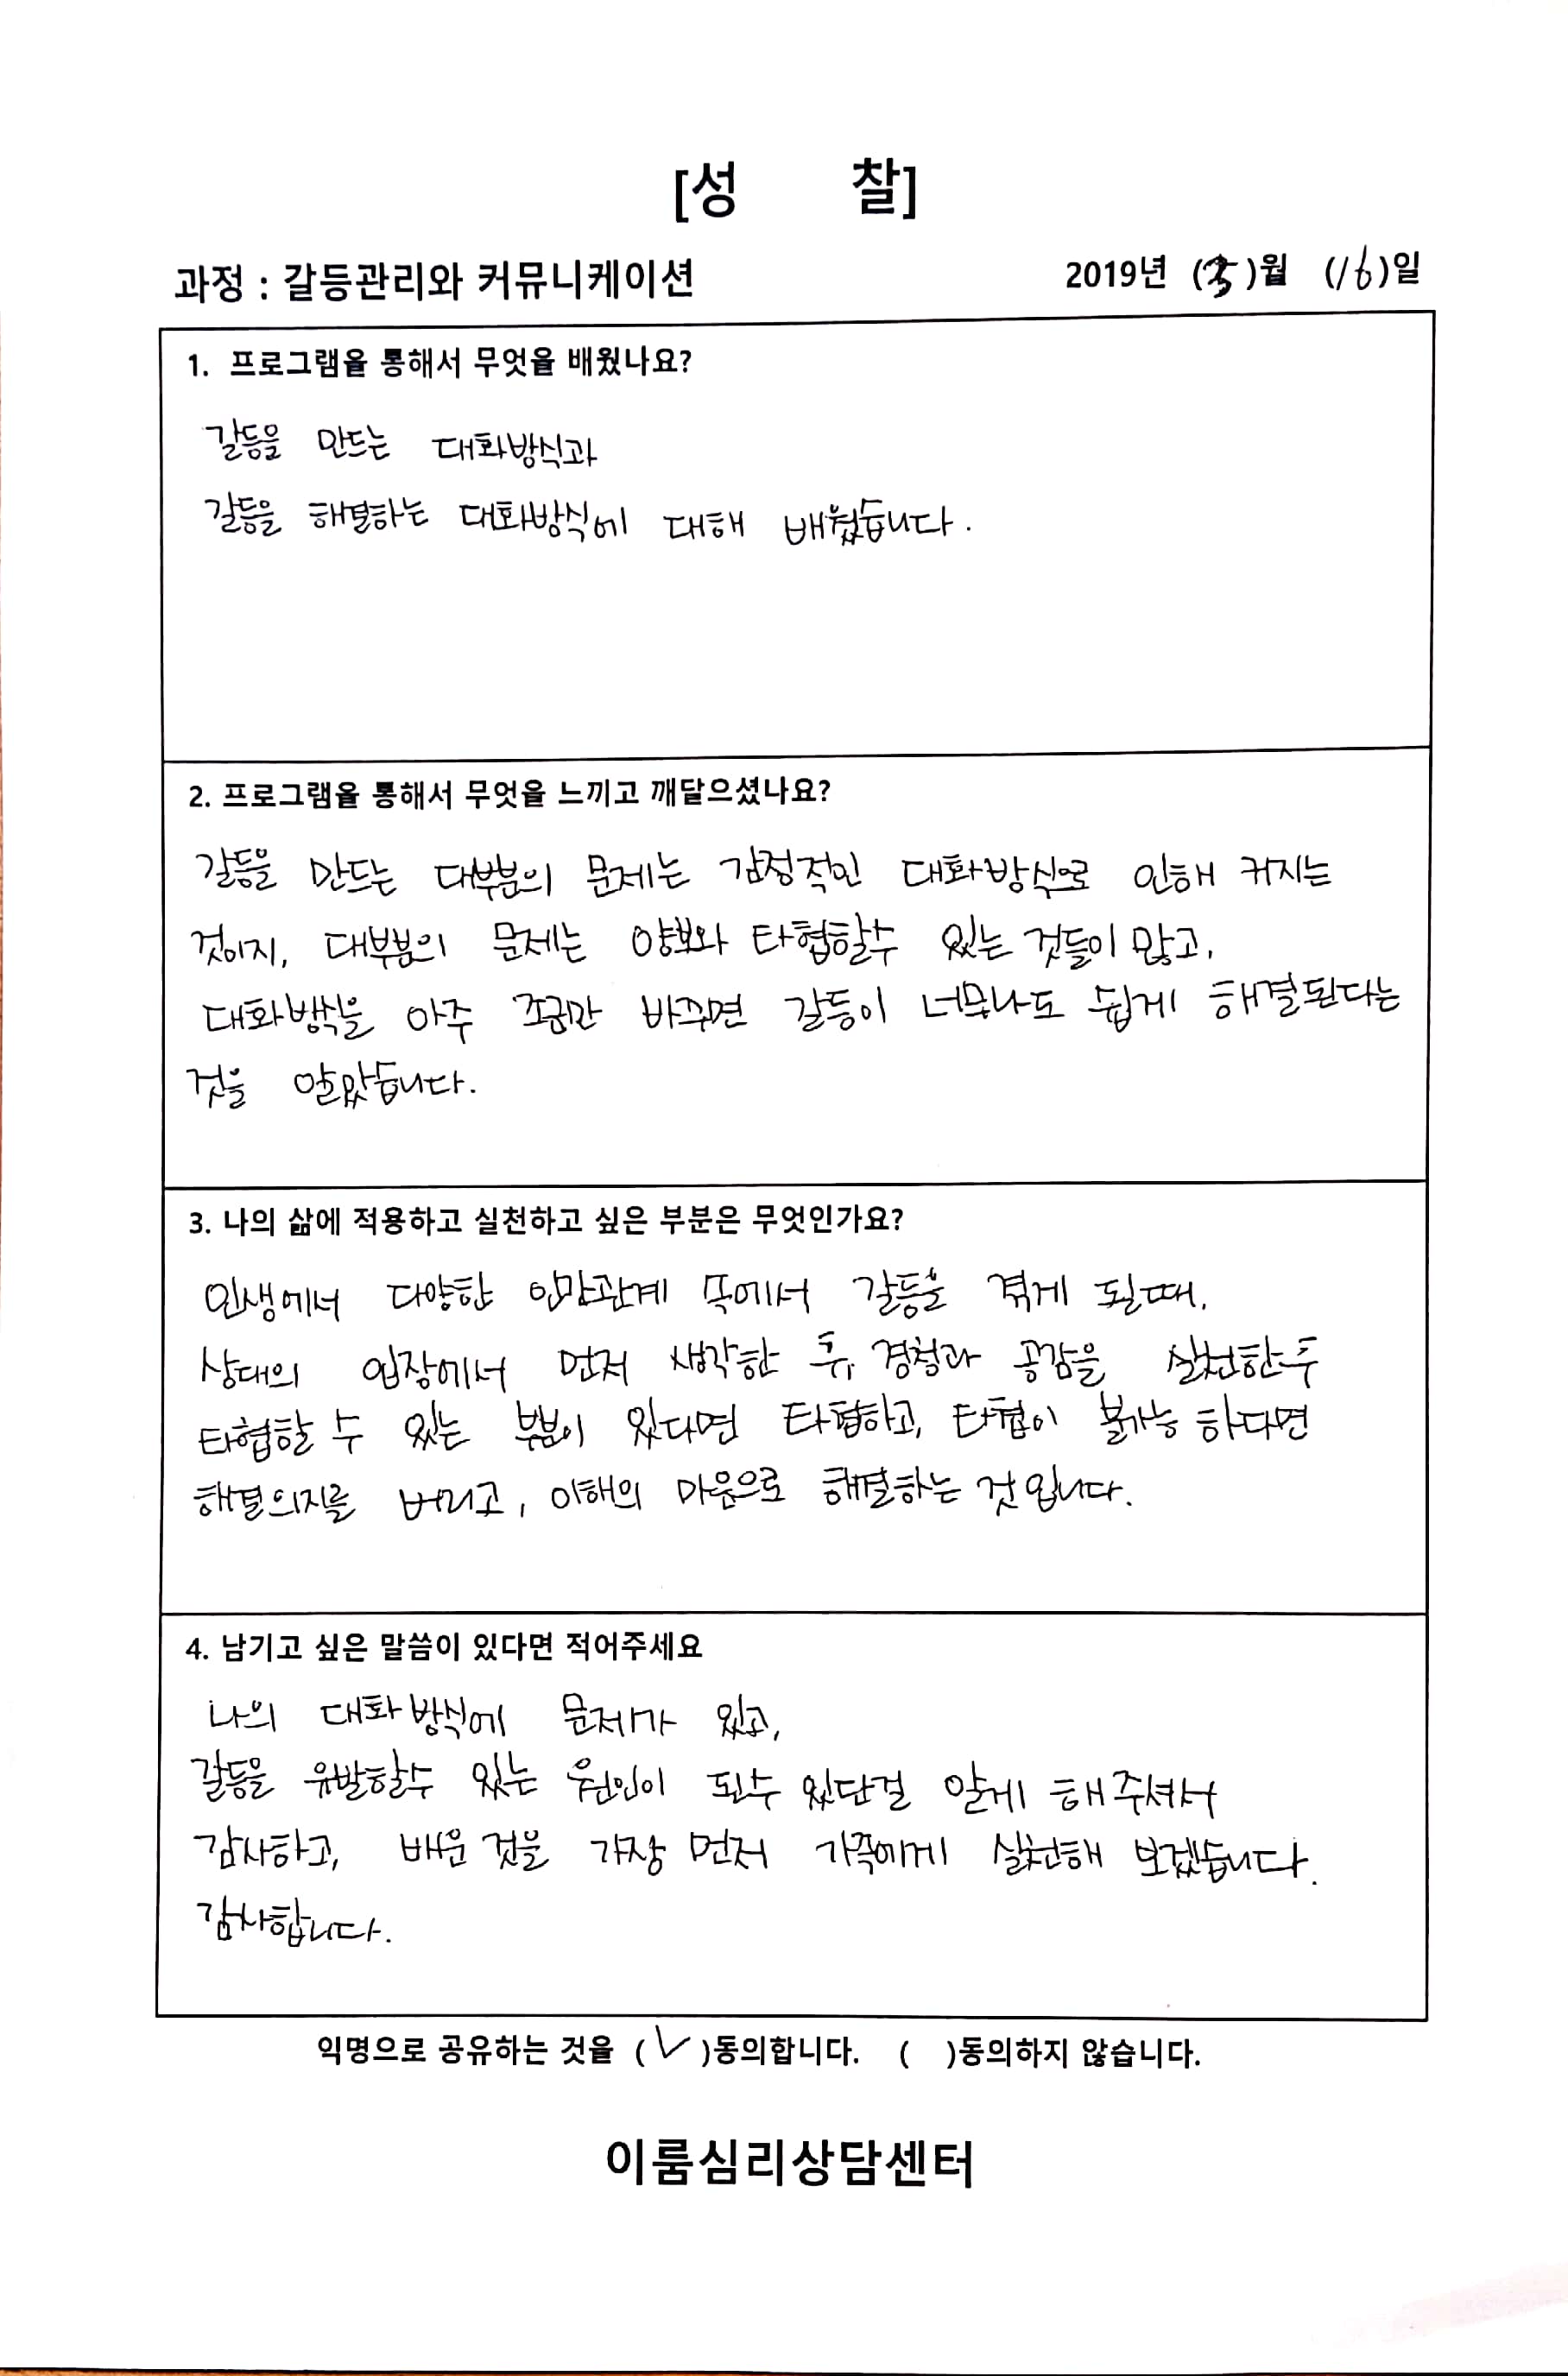 [성 찰]
과정 : 갈등관리와 커뮤니케이션 2019년 ( )월 (16)일
1. 프로그램을 통해서 무엇을 배웠나요?
갈등을 만드는 대화방식과
갈등을 해결하는 대화방식에 대해 배웠습니다.
2. 프로그램을 통해서 무엇을 느끼고 깨달으셨나요?
갈등을 만드는 대부분의 문제는 감정적인 대화방식으로 인해 커지는
것이지, 대부분의 문제는 양보와 타협할수 있는 것들이 많고,
대화방식을 아주 조금만 바꾸면 갈등이 너무나도 쉽게 해결된다는
것을 알았습니다.
3. 나의 삶에 적용하고 실천하고 싶은 부분은 무엇인가요?
인생에서 다양한 인간관계 속에서 갈등을 겪게 될때,
상대의 입장에서 먼저 생각한 후, 경청과 공감을 실천한후
타협할 수 있는 부분이 있다면 타협하고, 타협이 불가능 하다면
해결의지를 버리고, 이해의 마음으로 해결하는 것 입니다.
4. 남기고 싶은 말씀이 있다면 적어주세요
나의 대화방식에 문제가 있고,
갈등을 유발할수 있는 원인이 될수 있단걸 알게 해주셔서
감사하고, 배운 것을 가장 먼저 가족에게 실천해 보겠습니다.
감사합니다.
익명으로 공유하는 것을 (✓)동의합니다. ( )동의하지 않습니다.
이룸심리상담센터